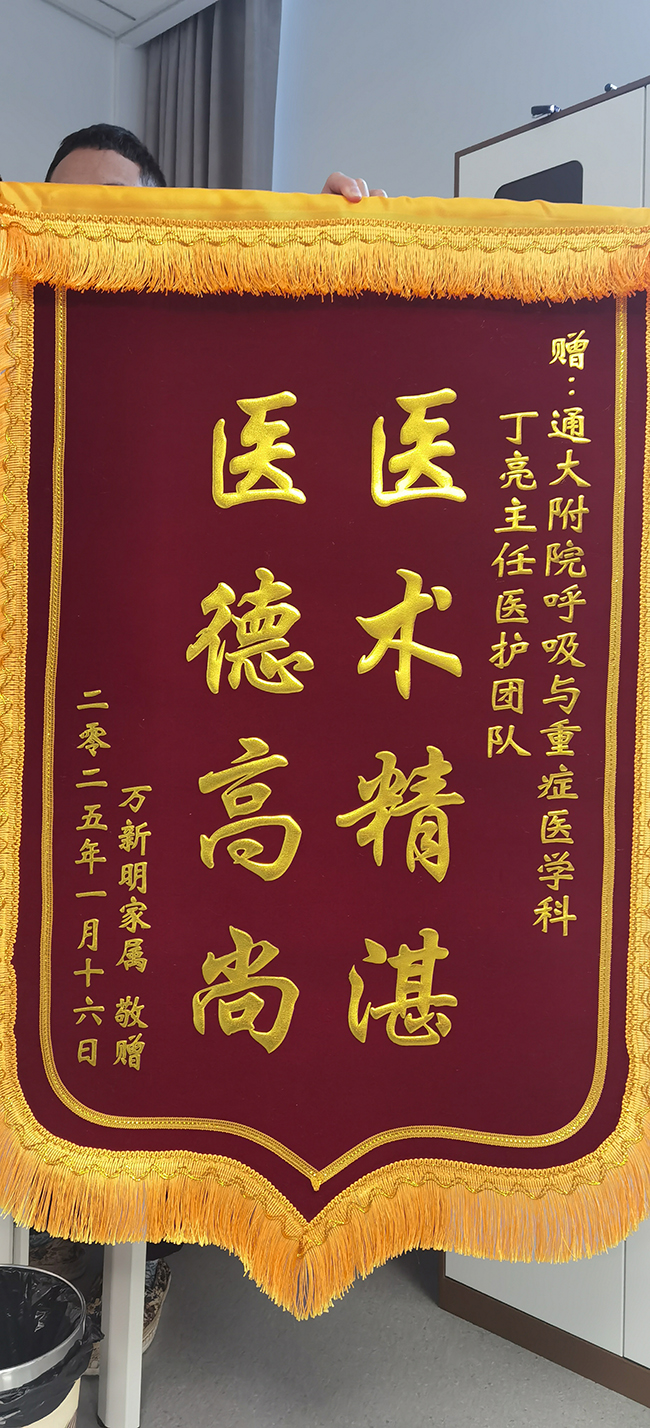 赠：通大附院呼吸与重症医学科
丁亮主任医护团队
医术精湛
医德高尚
万新明家属 敬赠
二零二五年一月十六日